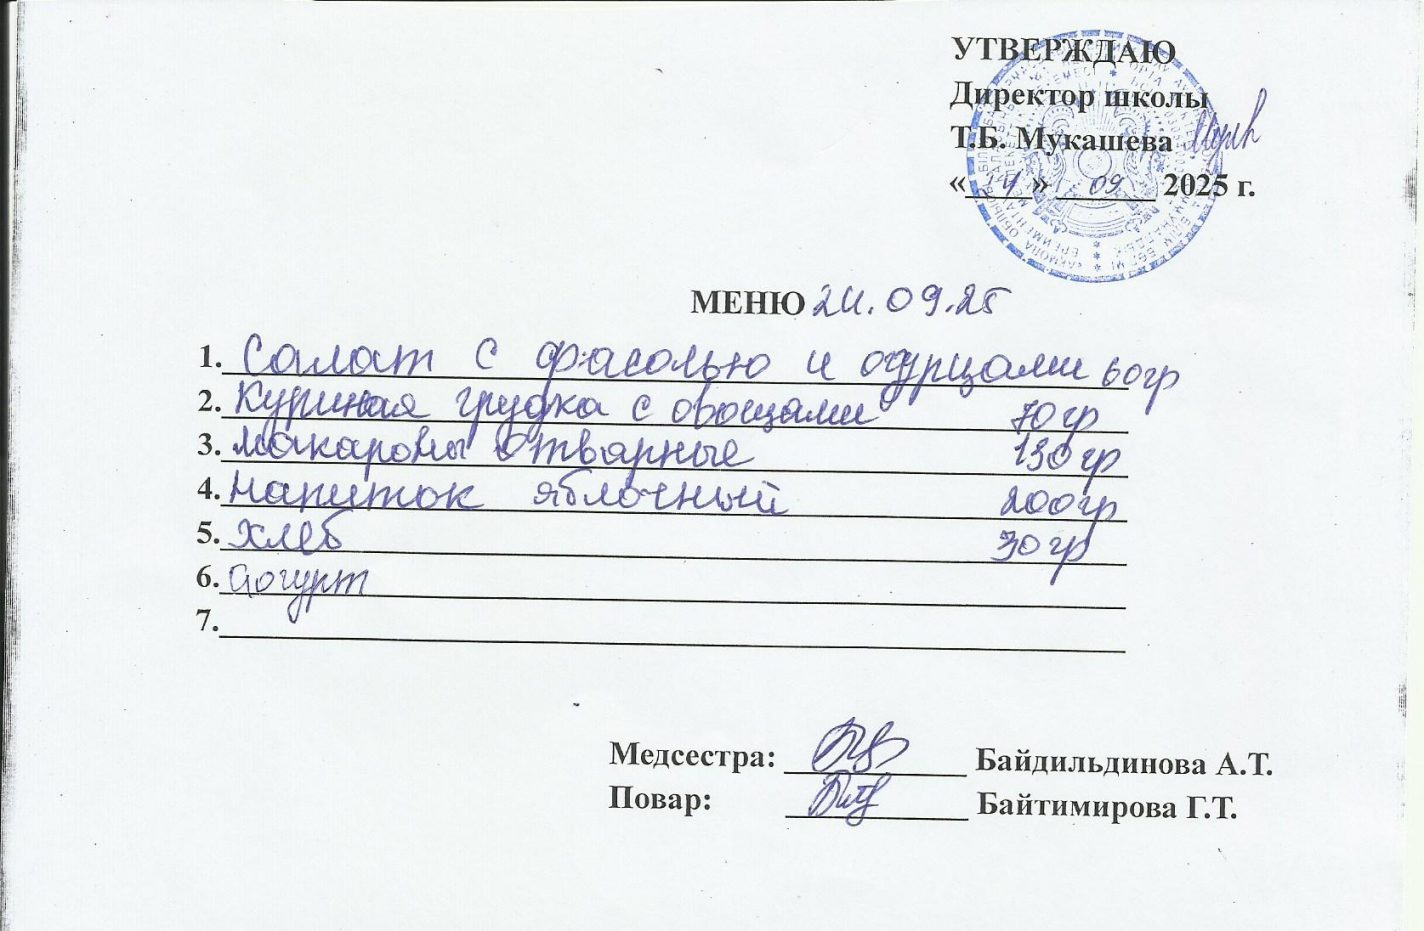 УТВЕРЖДАЮ
Директор школы
Т.Б. Мукашева
« » 09 2025 г.
МЕНЮ 24.09.25
1. Салат с фасолью и огурцами 60гр
2. Куриная грудка с овощами 70гр
3. Макароны отварные 130гр
4. Напиток яблочный 200гр
5. Хлеб 30гр
6. Йогурт
7.
Медсестра: Байдильдинова А.Т.
Повар: Байтимирова Г.Т.